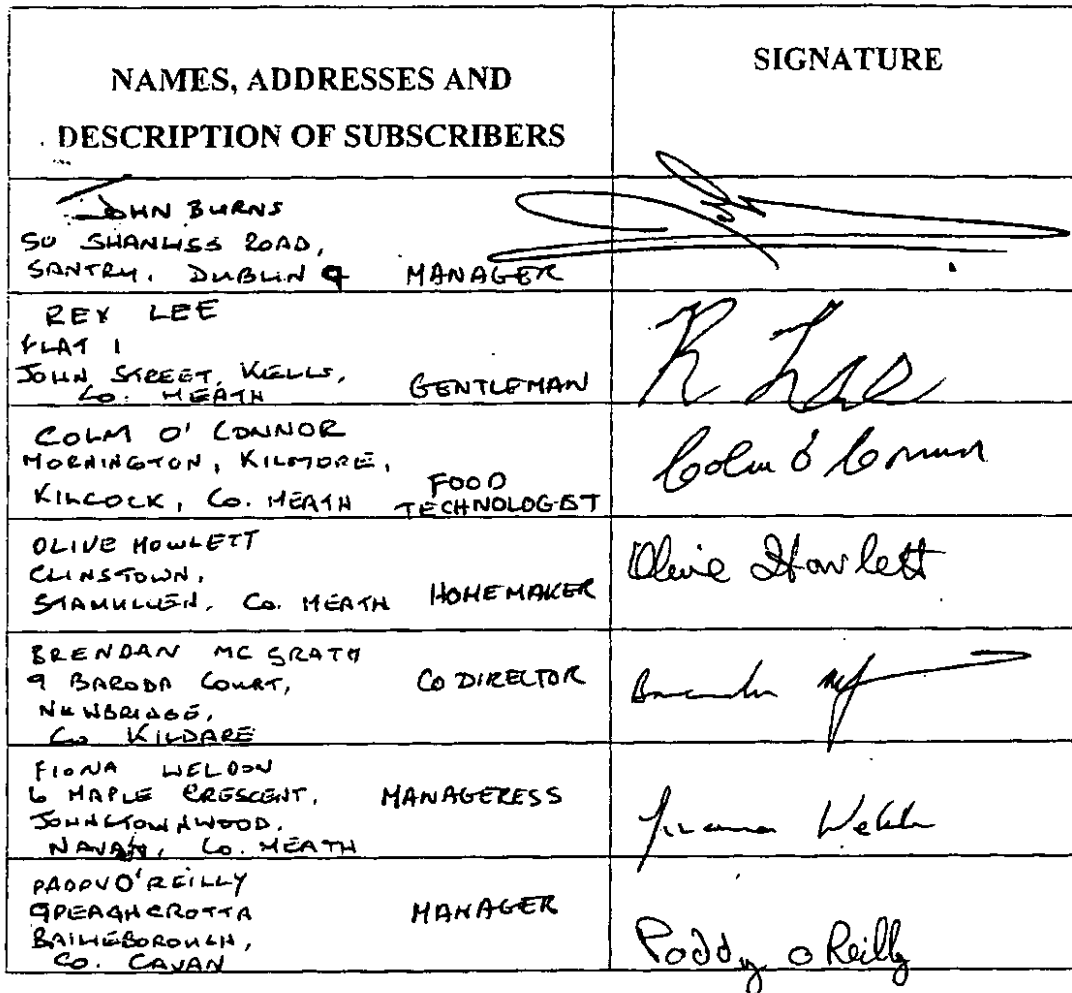 NAMES, ADDRESSES AND
DESCRIPTION OF SUBSCRIBERS
SIGNATURE
JOHN BURNS
50 SHANLISS ROAD,
SANTRY, DUBLIN 9 MANAGER
REX LEE
FLAT 1
JOHN STREET, KELLS,
CO. MEATH GENTLEMAN
R Lee
COLM O' CONNOR
MORNINGTON, KILMORE,
KILCOCK, CO. MEATH FOOD
TECHNOLOGIST
Colm O' Connor
OLIVE HOWLETT
CLINSTOWN,
STAMULLEN, CO. MEATH HOMEMAKER
Olive Howlett
BRENDAN MC GRATH
9 BARODA COURT, CO DIRECTOR
NEWBRIDGE,
CO KILDARE
FIONA WELDON
6 MAPLE CRESCENT, MANAGERESS
JOHNSTOWNWOOD,
NAVAN, CO. MEATH
PADDY O'REILLY
MANAGER
BAILIEBOROUGH,
CO. CAVAN
Paddy O Reilly